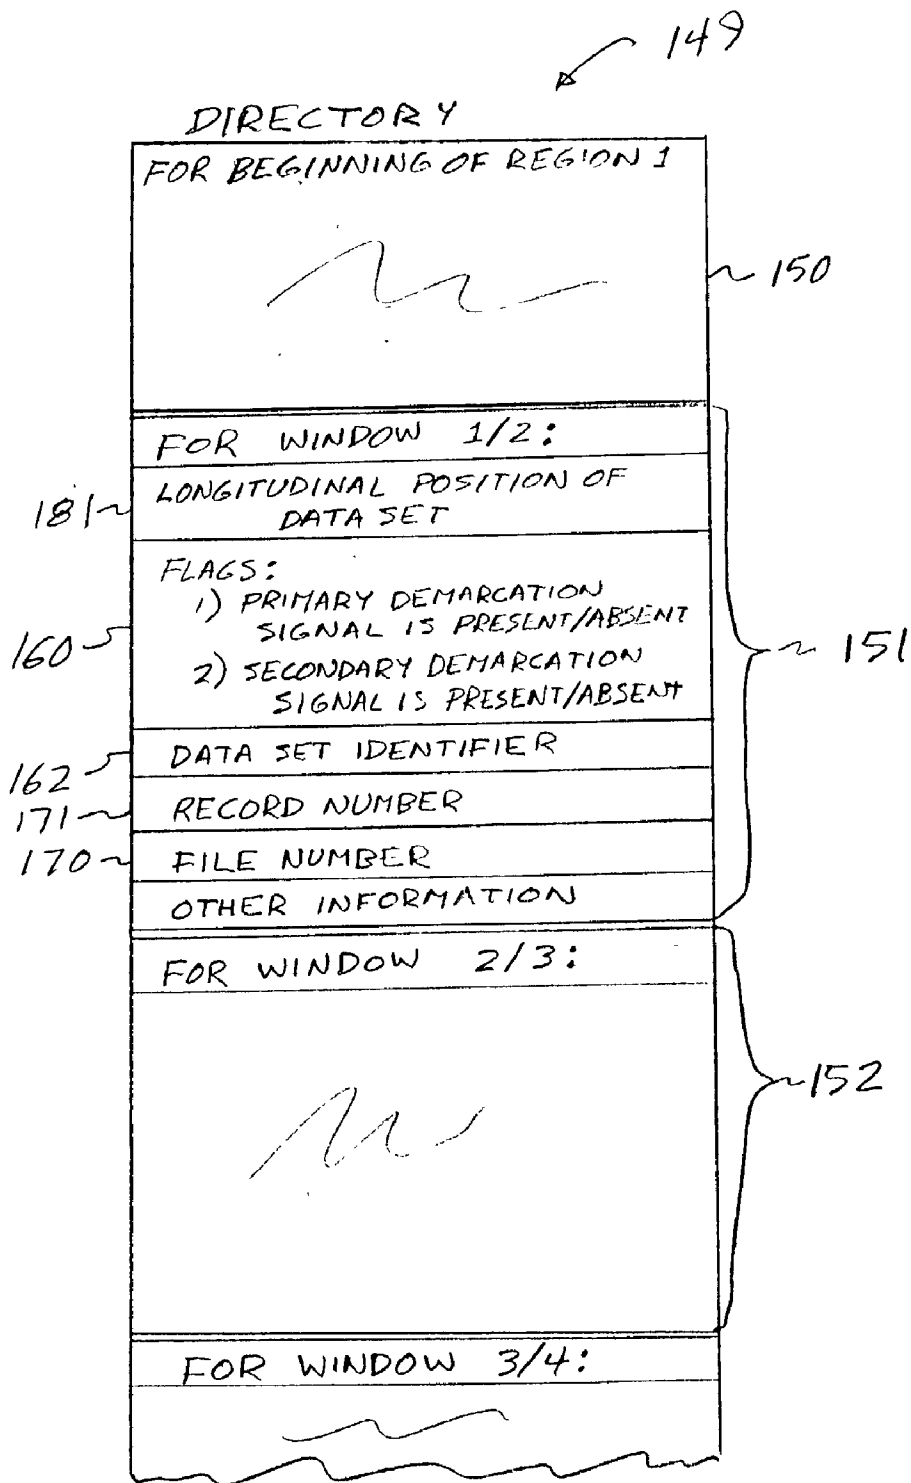 149
DIRECTORY
FOR BEGINNING OF REGION 1
150
FOR WINDOW 1/2:
181
LONGITUDINAL POSITION OF
DATA SET
FLAGS:
1) PRIMARY DEMARCATION
SIGNAL IS PRESENT/ABSENT
160
2) SECONDARY DEMARCATION
SIGNAL IS PRESENT/ABSENT
151
162
DATA SET IDENTIFIER
171
RECORD NUMBER
170
FILE NUMBER
OTHER INFORMATION
FOR WINDOW 2/3:
152
FOR WINDOW 3/4: